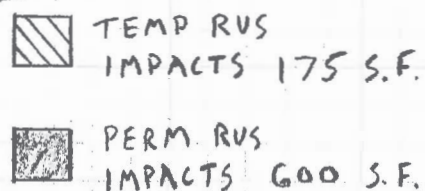 TEMP RVS
IMPACTS 175 S.F.
PERM RVS
IMPACTS 600 S.F.